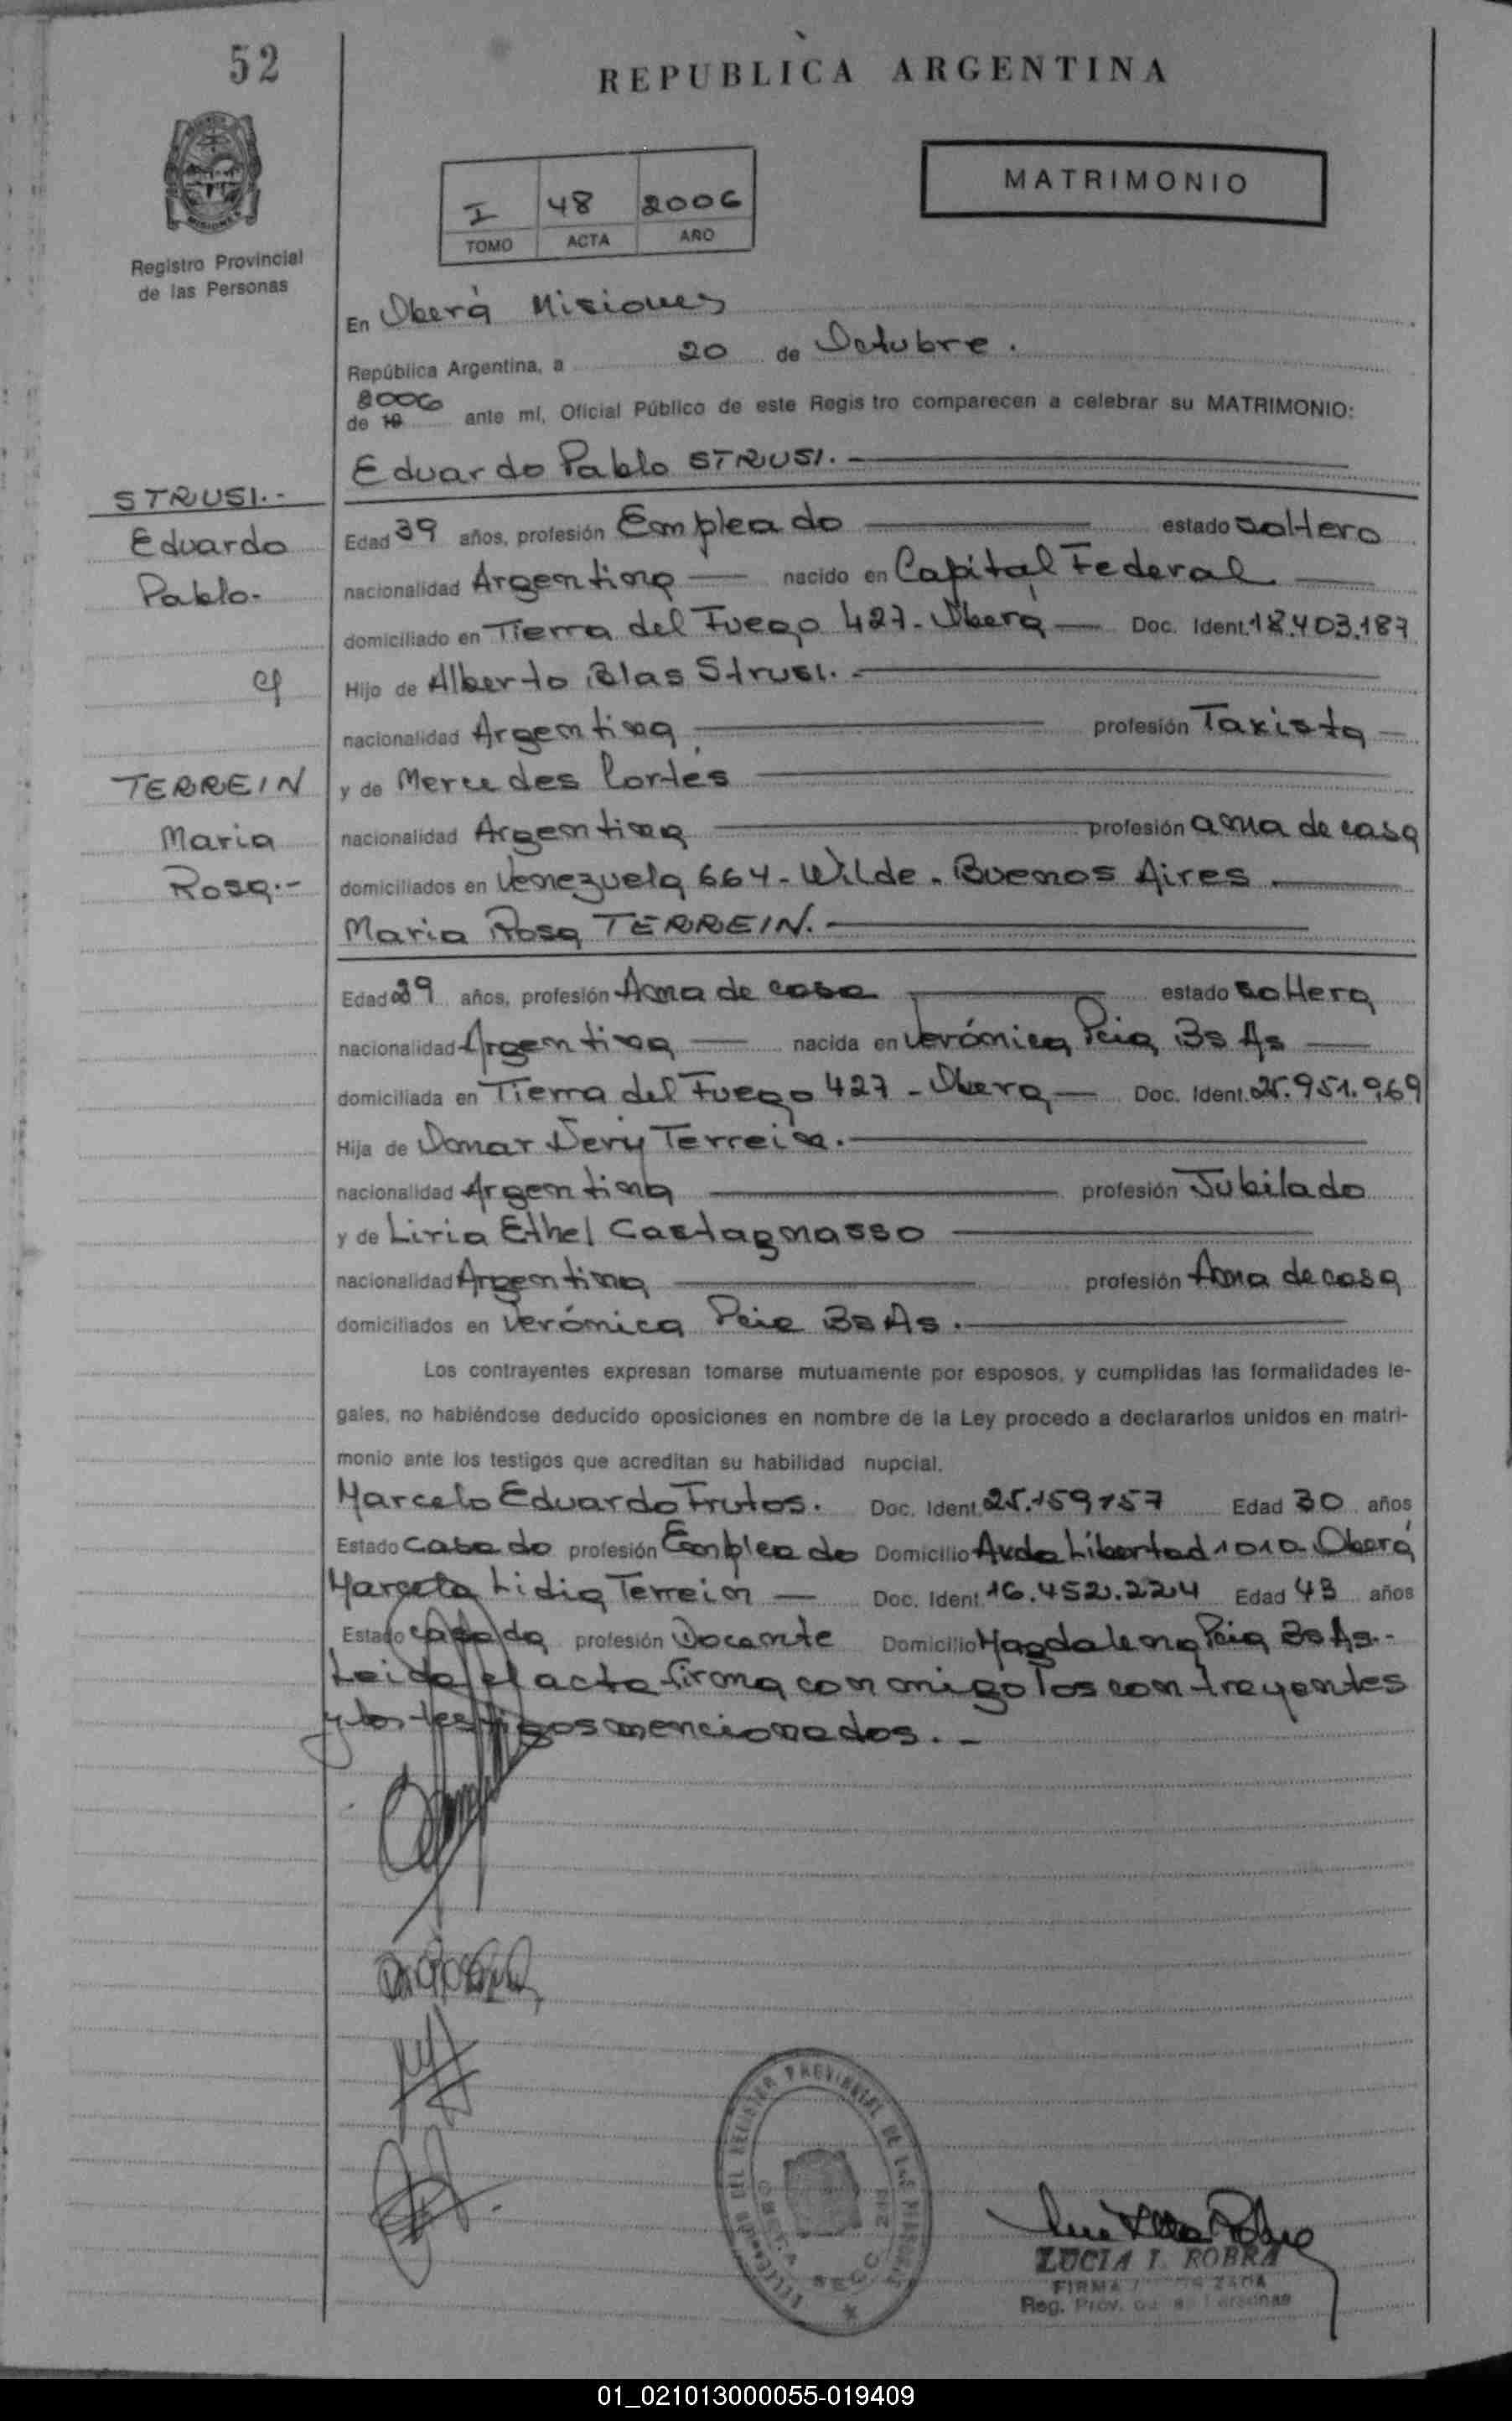 52
REPUBLICA ARGENTINA
MATRIMONIO
I 48 2006
TOMO ACTA AÑO
Registro Provincial
de las Personas
En Oberá Misiones
República Argentina, a 20 de Octubre.
2006
de 19 ante mí, Oficial Público de este Registro comparecen a celebrar su MATRIMONIO:
Eduardo Pablo STRUSI.
STRUSI.-
Eduardo
Pablo.-
c/
TERREIN
Maria
Rosa.-
Edad 39 años, profesión Empleado estado soltero
nacionalidad Argentina nacido en Capital Federal
domiciliado en Tierra del Fuego 427 - Oberá Doc. Ident. 18.403.187
Hijo de Alberto Blas Strusi.
nacionalidad Argentina profesión Taxista
y de Mercedes Cortés
nacionalidad Argentina profesión ama de casa
domiciliados en Venezuela 664 - Wilde - Buenos Aires
Maria Rosa TERREIN.
Edad 29 años, profesión Ama de casa estado soltera
nacionalidad Argentina nacida en Verónica Pcia Bs As
domiciliada en Tierra del Fuego 427 - Obera Doc. Ident. 25.951.969
Hija de Omar Dery Terrein.
nacionalidad Argentina profesión Jubilado
y de Liria Ethel Castagnasso
nacionalidad Argentina profesión Ama de casa
domiciliados en Verónica Pcia Bs As.
Los contrayentes expresan tomarse mutuamente por esposos, y cumplidas las formalidades le-
gales, no habiéndose deducido oposiciones en nombre de la Ley procedo a declararlos unidos en matri-
monio ante los testigos que acreditan su habilidad nupcial.
Marcelo Eduardo Frutos. Doc. Ident. 25.159157 Edad 30 años
Estado Casado profesión Empleado Domicilio Avda Libertad 1010 Oberá
Marcela Lidia Terrein Doc. Ident. 16.452.224 Edad 43 años
Estado casada profesión Docente Domicilio Magdalena Pcia Bs As.-
Leida el acta firma con migo los contrayentes
y los testigos mencionados.-
LUCIA I. ROBRA
FIRMA
Reg. Prov. de las Personas
01_021013000055-019409